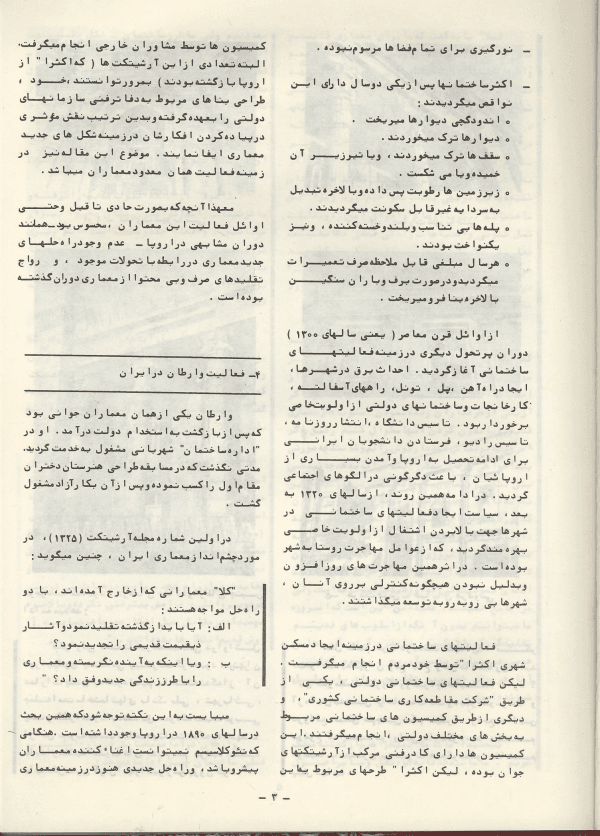 ـ نورگیری برای تمام فضاها مرسوم نبوده .
ـ اکثر ساختمانها پس از یکی دو سال دارای این
نواقص میگردیدند :
o اندودگچی دیوارها میریخت .
o دیوارها ترک میخوردند .
o سقف ها ترک میخوردند ، ویا تیرزیر آن
خمیده ویا می شکست .
o زیرزمین ها رطوبت پس داده وبالاخره تبدیل
به سردابه غیرقابل سکونت میگردیدند .
o پله‌ها بی تناسب وبلندوخسته کننده ، ونیز
یکنواخت بودند .
o هرسال مبلغی قابل ملاحظه صرف تعمیرات
میگردید ودرصورت برف وباران سنگین
بالاخره بنا فرومیریخت .
ازاوائل قرن معاصر ( یعنی سالهای ۱۳۰۰ )
دوران پرتحول دیگری درزمینه فعالیتهای
ساختمانی آغازگردید . احداث برق درشهرها ،
ایجادراه آهن ،پل ، تونل ، راههای آسفالته ،
کارخانجات وساختمانهای دولتی ازاولویت خاصی
برخورداربود . تاسیس دانشگاه ،انتشارروزنامه ،
تاسیس رادیو ، فرستادن دانشجویان ایرانی
برای ادامه تحصیل به اروپا وآمدن بسیاری از
اروپائیان ، باعث دگرگونی درالگوهای اجتماعی
گردید . درادامه همین روند ، ازسالهای ۱۳۲۰ به
بعد ، سیاست ایجادفعالیتهای ساختمانی در
شهرها جهت بالابردن اشتغال ازاولویت خاصی
بهره مندگردید ، که ازعوامل مهاجرت روستا به شهر
بوده است . دراثرهمین مهاجرت های روزافزون
وبدلیل نبودن هیچگونه کنترلی برروی آنان ،
شهرها بی رویه روبه توسعه میگذاشتند .
فعالیتهای ساختمانی درزمینه ایجادمسکن
شهری اکثرا" توسط خودمردم انجام میگرفت .
لیکن فعالیتهای ساختمانی دولتی ، یکی از
طریق "شرکت مقاطعه کاری ساختمانی کشوری" ، و
دیگری ازطریق کمیسیون های ساختمانی مربوط
به بخش های مختلف دولتی ،انجام میگرفتند .این
کمیسیون ها دارای کادرفنی مرکب ازآرشیتکتهای
جوان بوده ، لیکن اکثرا" طرحهای مربوط به این
کمیسیون ها توسط مشاوران خارجی انجام میگرفت.
البته تعدادی ازاین آرشیتکت ها ( که اکثرا" از
اروپا بازگشته بودند ) بمرورتوانستند ،خود ،
طراحی بناهای مربوط به دفاترفنی سازمانهای
دولتی را بعهده گرفته وبدین ترتیب نقش مؤثری
درپیاده کردن افکارشان درزمینه شکل های جدید
معماری ایفا نمایند . موضوع این مقاله نیز در
زمینه فعالیت همان معدود معماران میباشد .
معهذا آنچه که بصورت حادی تا قبل وحتی
اوائل فعالیت این معماران ،محسوس بود ـ همانند
دوران مشابهی دراروپا ـ عدم وجود راه حلهای
جدید معماری دررابطه با تحولات موجود ، و رواج
تقلیدهای صرف وبی محتوا ازمعماری دوران گذشته
بوده است .
۴ـ فعالیت وارطان درایران
وارطان یکی ازهمان معماران جوانی بود
که پس ازبازگشت به استخدام دولت درآمد . او در
"اداره ساختمان" شهربانی مشغول به خدمت گردید.
مدتی نگذشت که درمسابقه طراحی هنرستان دختران
مقام اول را کسب نموده وپس ازآن بکارآزاد مشغول
گشت .
دراولین شماره مجله آرشیتکت (۱۳۲۵) ، در
موردچشم اندازمعماری ایران ، چنین میگوید :
"کلا" معمارانی که ازخارج آمده اند ، با دو
راه حل مواجه هستند :
الف : آیا بایدازگذشته تقلید نمود وآثار
ذیقیمت قدیمی را تجدید نمود ؟
ب : ویا اینکه به آینده نگریسته ومعماری
را با طرززندگی جدیدوفق داد ؟ "
میبایست به این نکته توجه شودکه همین بحث
درسالهای ۱۸۹۰ دراروپا وجودداشته است .هنگامی
که نئوکلاسیسم نمیتوانست اغناء کننده معماران
پیشروباشد ، وراه حل جدیدی هنوزدرزمینه معماری
ـ ۳ ـ